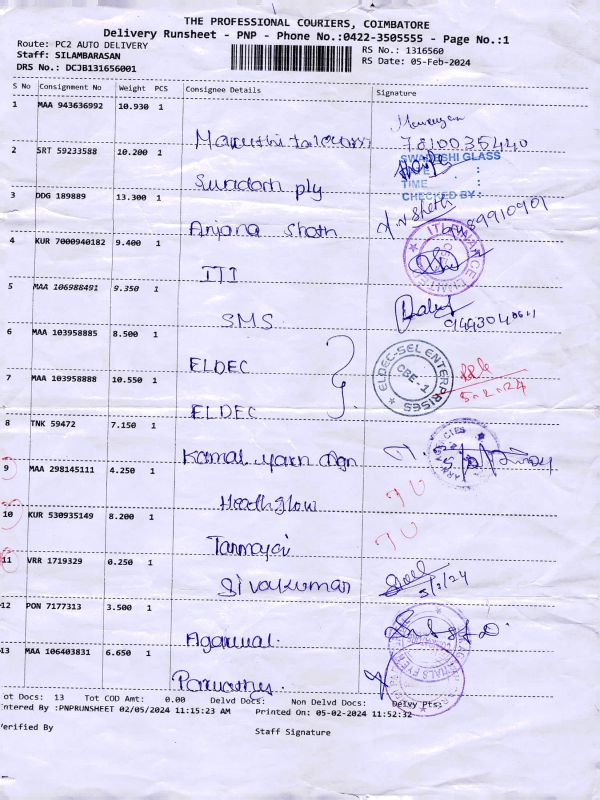 THE PROFESSIONAL COURIERS, COIMBATORE
Delivery Runsheet - PNP - Phone No.:0422-3505555 - Page No.:1
Route: PC2 AUTO DELIVERY RS No.: 1316560
Staff: SILAMBARASAN RS Date: 05-Feb-2024
DRS No.: DCJB131656001
S No Consignment No Weight PCS Consignee Details Signature
1 MAA 943636992 10.930 1
Maruthi 7810035440
2 SRT 59233588 10.200 1 SWADESHI GLASS
TIME :
Sundarh ply CHECKED BY:
3 DDG 189889 13.300 1
Anjana Sheth
4 KUR 7000940182 9.400 1
ITI
5 MAA 106988491 9.350 1
SMS
6 MAA 103958885 8.500 1
ELDEC ELDEC-SEL ENTERPRISES CBE - 1
7 MAA 103958888 10.550 1 5.2.24
ELDEC
8 TNK 59472 7.150 1
Kamal yarn Agn
9 MAA 298145111 4.250 1
Health glow
10 KUR 530935149 8.200 1
Tanmayai
11 VRR 1719329 0.250 1
Sivakumar 5/2/24
12 PON 7177313 3.500 1
Agarwal
13 MAA 106403831 6.650 1
ot Docs: 13 Tot COD Amt: 0.00 Delvd Docs: Non Delvd Docs: Delvy Pts:
ntered By :PNPRUNSHEET 02/05/2024 11:15:23 AM Printed On: 05-02-2024 11:52:32
erified By Staff Signature